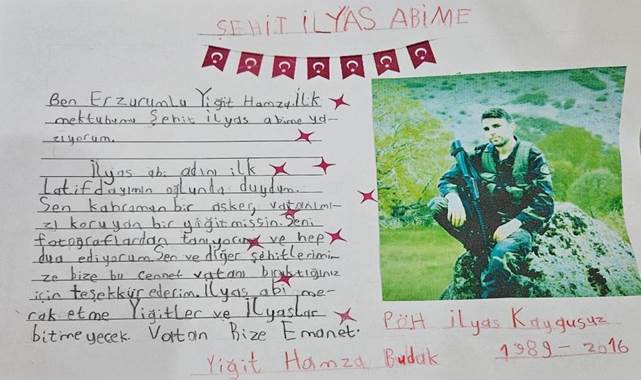 ŞEHİT İLYAS ABİME
Ben Erzurumlu Yiğit Hamza. İlk
mektubumu Şehit İlyas abime ya-
zıyorum.
İlyas abi adını ilk
Latif dayımın oğlundan duydum.
Sen kahraman bir asker, vatanımı-
zı koruyan bir yiğitmişsin. Seni
fotoğraflardan tanıyorum ve hep
dua ediyorum. Sen ve diğer şehitlerimi-
ze bize bu cennet vatanı bıraktığınız
için teşekkür ederim. İlyas abi me-
rak etme Yiğitler ve İlyaslar
bitmeyecek. Vatan Bize Emanet.
Yiğit Hamza Budak
PÖH İlyas Kaygusuz
1989 - 2016